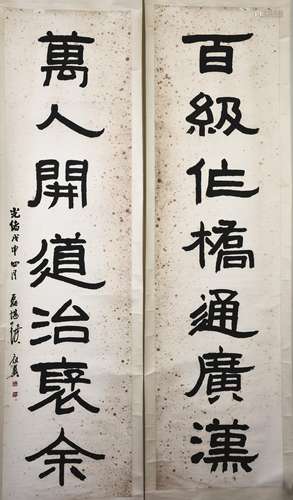 百級作橋通廣漢
萬人開道治襃余
光緒戊申四月